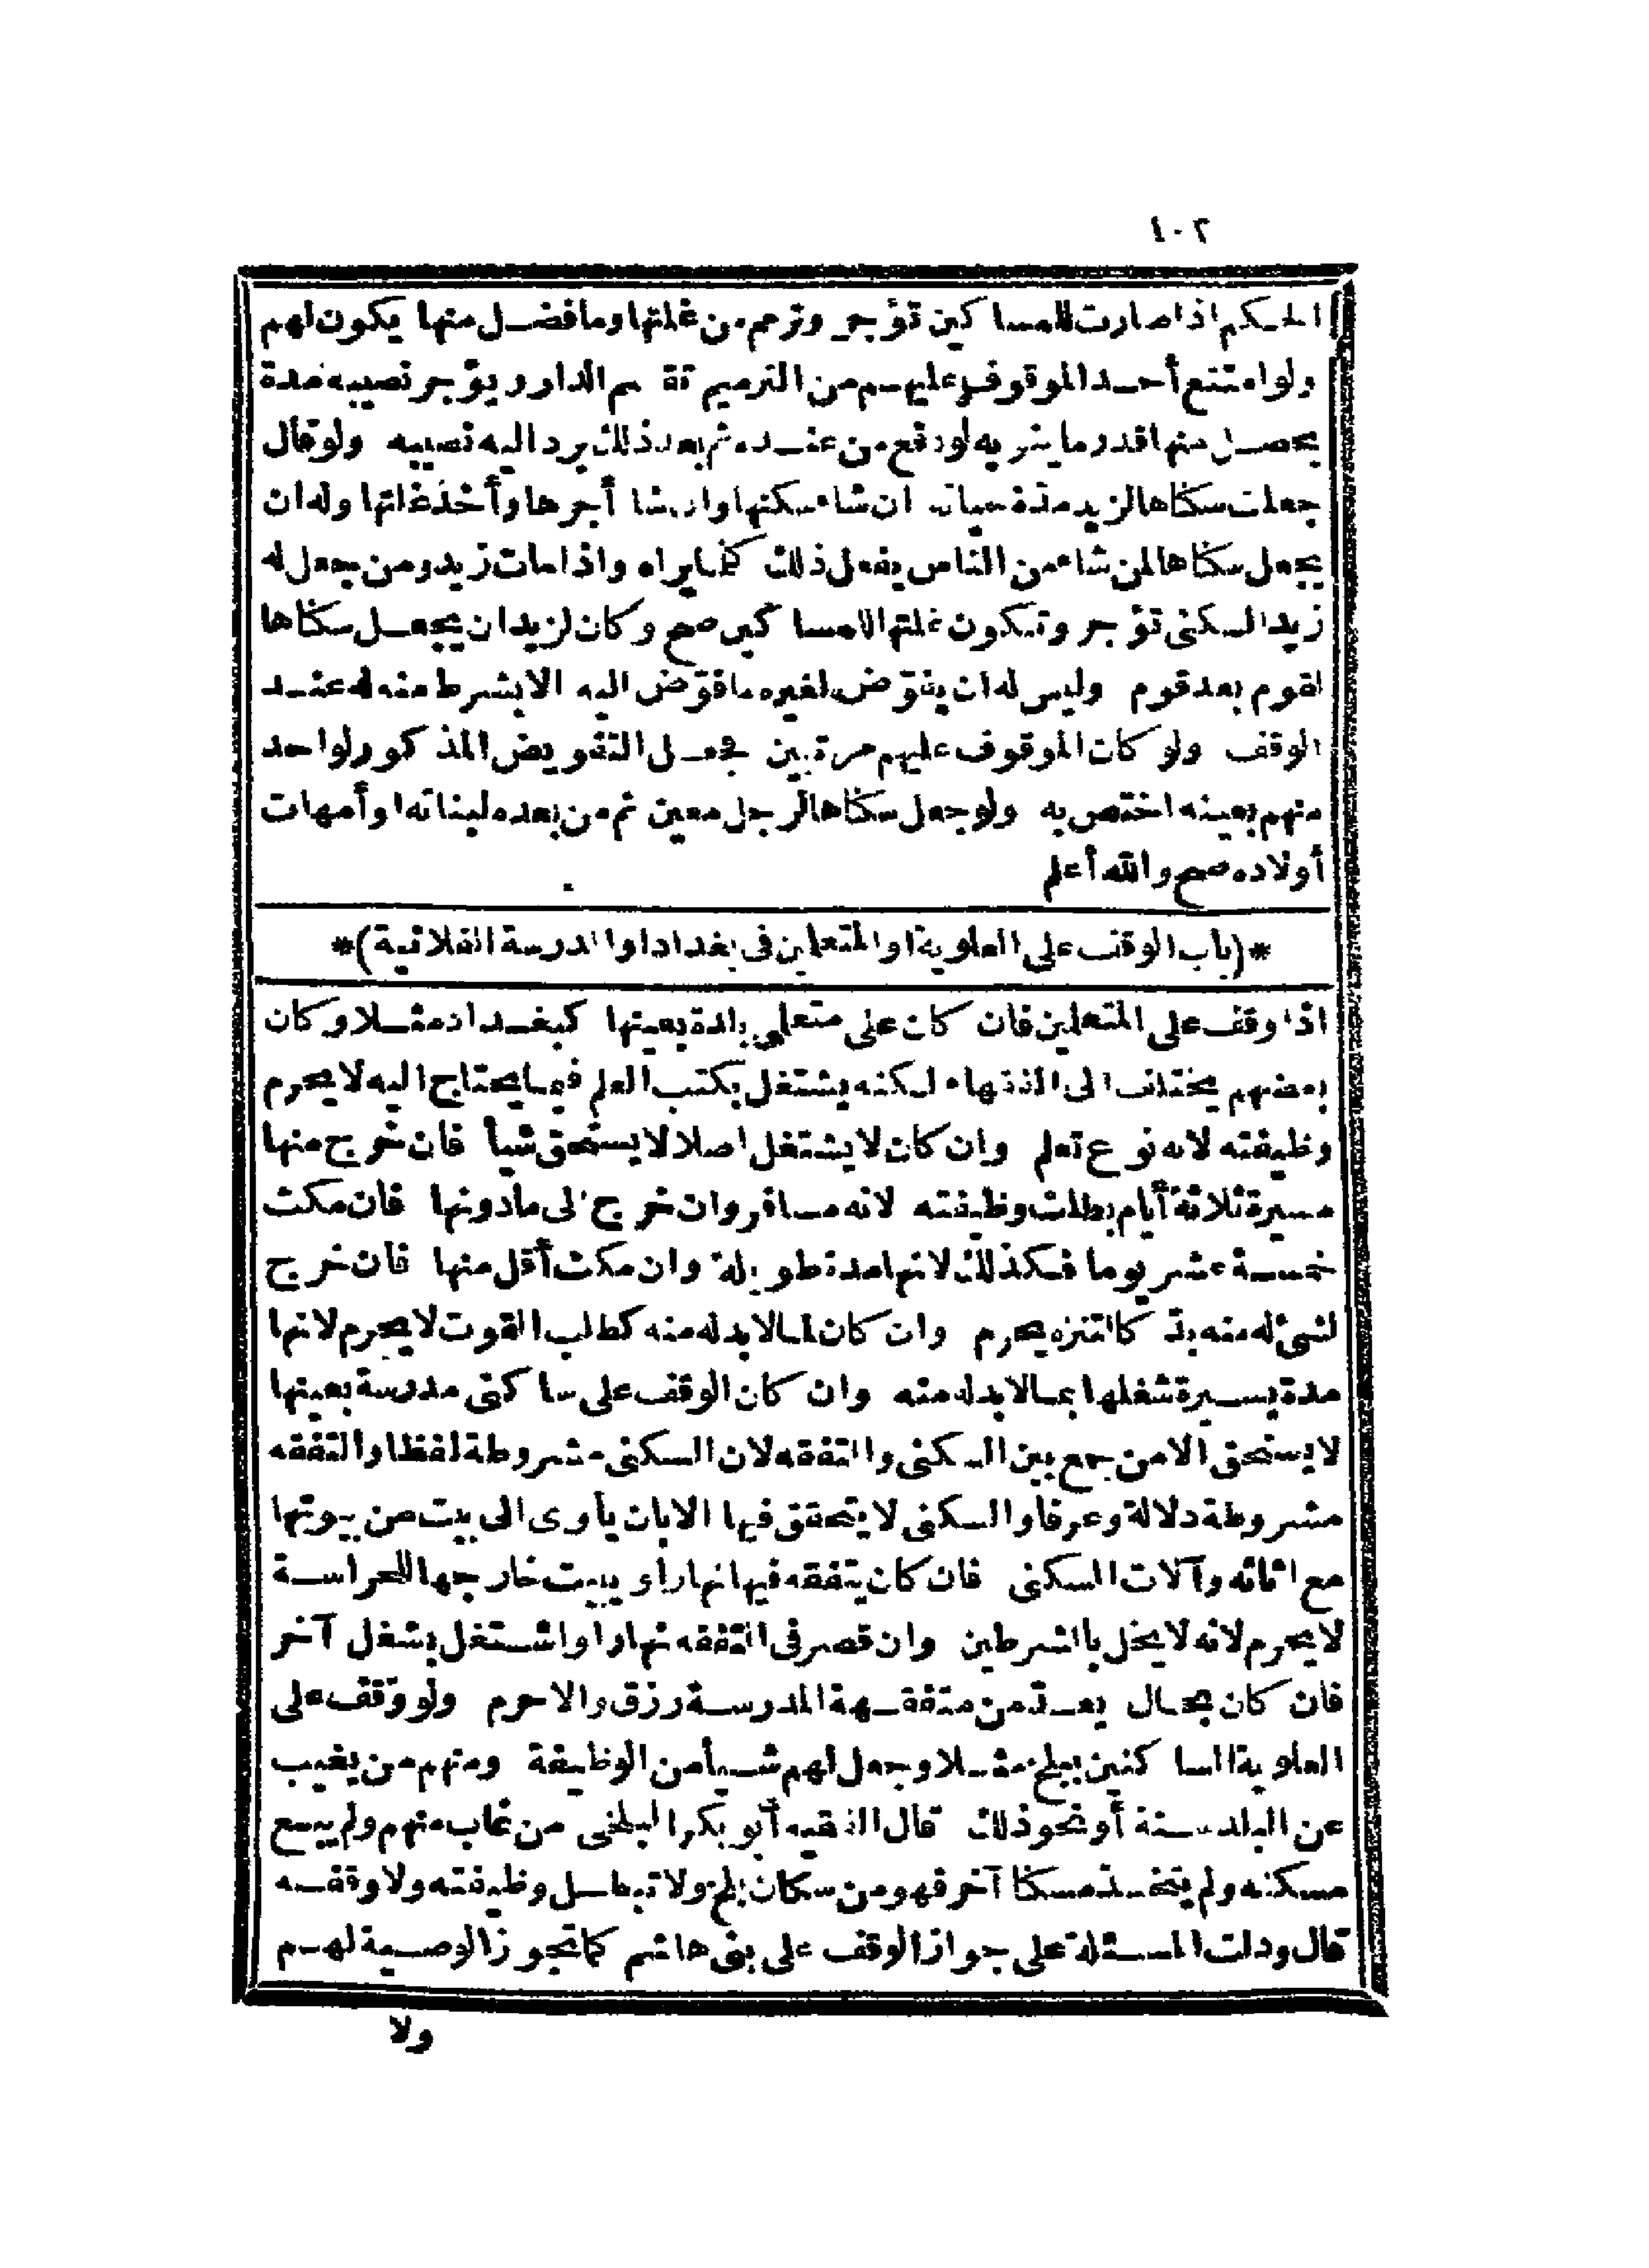 ١٠٢
الحكم اذا صارت للمساكين تؤجر وترمم من غلتها وما فضل منها يكون لهم
ولو امتنع أحد الموقوف عليهم من الترميم تقسم الدار ويؤجر نصيبه مدة
يحصل منها قدر ما ينو به لو دفع من عنده ثم بعد ذلك يرد اليه نصيبه ولو قال
جعلت سكناها لزيد مدة حياته ان شاء سكنها وان شا أجرها وأخذ غلتها وله ان
يجعل سكناها لمن شاء من الناس يفعل ذلك كما يراه واذا مات زيد ومن جعل له
زيد السكنى تؤجر وتكون غلتها للمساكين صح وكان لزيد ان يجعل سكناها
لقوم بعد قوم وليس له ان يفوّض لغيره ما فوّض اليه الا بشرط منه له عند
الوقف ولو كان الموقوف عليهم مرتبين فجعل التفويض المذكور لواحد
منهم بعينه اختص به ولو جعل سكناها لرجل معين ثم من بعده لبناته او أمهات
أولاده صح والله أعلم
*(باب الوقف على العلوية او المتعلمين فى بغداد او المدرسة الفلانية)*
اذا وقف على المتعلمين فان كان على متعلمى بلدة بعينها كبغداد مثلا وكان
بعضهم يختلف الى الفقهاء لكنه يشتغل بكتب العلم فيما يحتاج اليه لا يحرم
وظيفته لانه نوع تعلم وان كان لا يشتغل اصلا لا يستحق شيأ فان خرج منها
مسيرة ثلاثة أيام بطلت وظيفته لانه مسافر وان خرج الى ما دونها فان مكث
خمسة عشر يوما فكذلك لانها مدة طويلة وان مكث أقل منها فان خرج
لشئ له منه بدّ كالتنزه يحرم وان كان لما لا بد له منه كطلب القوت لا يحرم لانها
مدة يسيرة شغلها بما لا بد له منه وان كان الوقف على ساكنى مدرسة بعينها
لا يستحق الا من جمع بين السكنى والتفقه لان السكنى مشروطة لفظا والتفقه
مشروطة دلالة وعرفا والسكنى لا يتحقق فيها الا بان يأوى الى بيت من بيوتها
مع اثاثه وآلات السكنى فان كان يتفقه فيها نهارا ويبيت خارجها للحراسة
لا يحرم لانه لا يخل بالشرطين وان قصر فى التفقه نهارا واشتغل بشغل آخر
فان كان بحال يعدّ من متفقهة المدرسة رزق والا حرم ولو وقف على
العلوية الساكنين ببلخ مثلا وجعل لهم شيأ من الوظيفة ومنهم من يغيب
عن البلد سنة أو نحو ذلك قال الفقيه أبو بكر البلخى من غاب منهم ولم يبع
مسكنه ولم يتخذ مسكنا آخر فهو من سكان بلخ ولا تبطل وظيفته ولا وقفه
قال ودلت المسئلة على جواز الوقف على بنى هاشم كما تجوز الوصية لهم
ولا